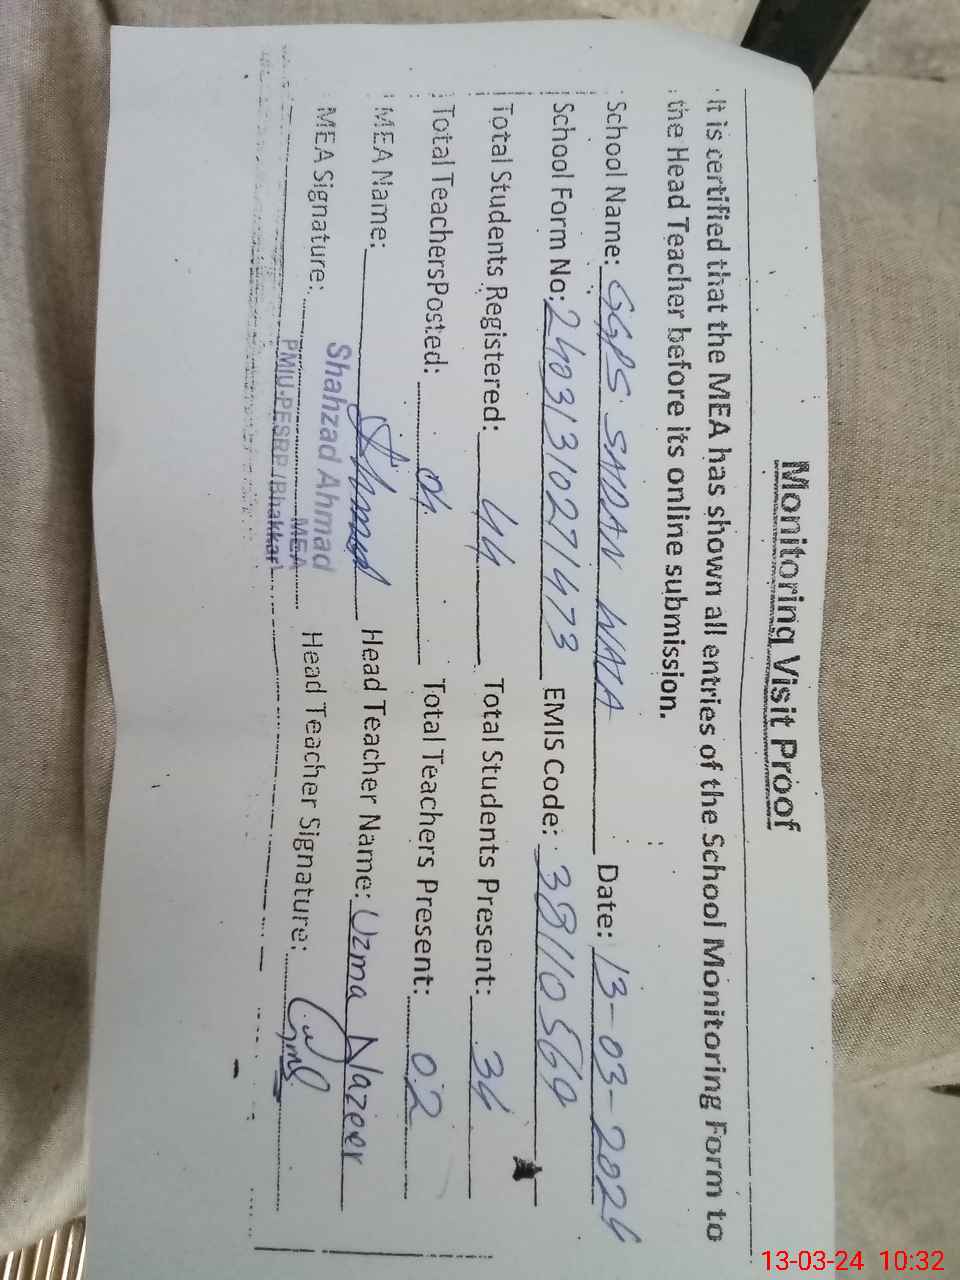 Monitoring Visit Proof
It is certified that the MEA has shown all entries of the School Monitoring Form to
the Head Teacher before its online submission.
School Name: GGPS SADAN WALA Date: 13-03-2024
School Form No: 24031310271473 EMIS Code: 38110569
Total Students Registered: 44 Total Students Present: 34
Total TeachersPosted: 04 Total Teachers Present: 02
MEA Name: Ahmad Head Teacher Name: Uzma Nazeer
MEA Signature: Shahzad Ahmad Head Teacher Signature:
MEA
PMIU-PESRP (Bhakkar)
13-03-24 10:32